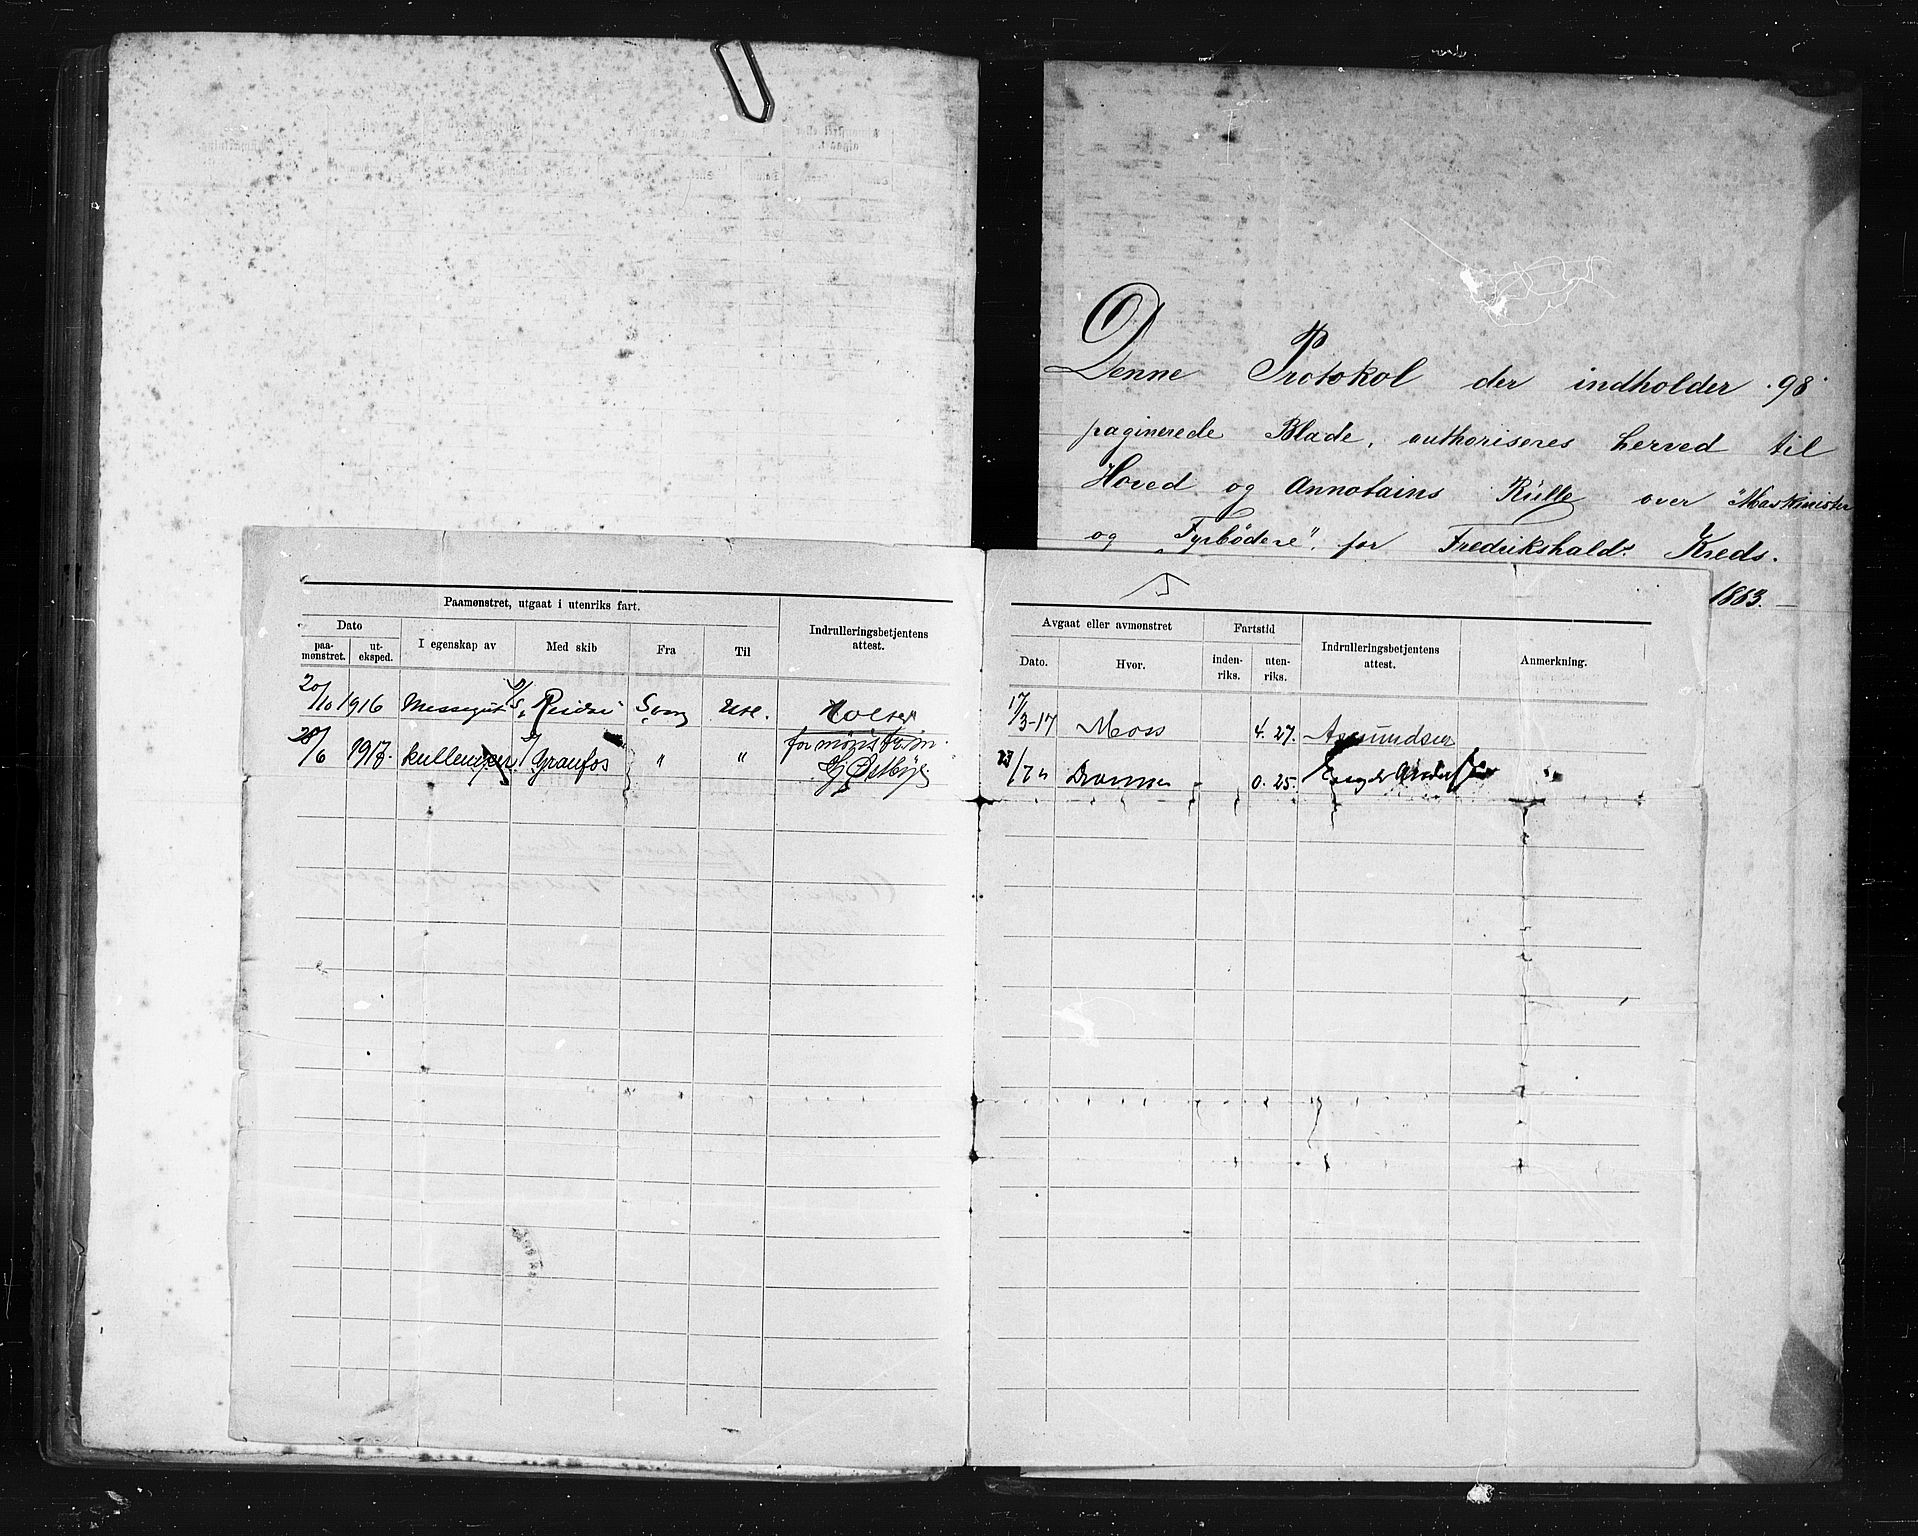 Denne Protokol der indholder 98
paginerede Blade, authoriseres herved til
Hoved og Annotains Rülle over "Maskinister
og Fyrbödere" for Fredrikshalds Kreds.
1863.
Paamønstret, utgaat i utenriks fart.
Dato
paa-
mønstret.
ut-
eksped.
I egenskap av
Med skib
Fra
Til
Indrulleringsbetjentens
attest.
20/10 1916 Messegut D/S Reidar Sarp Utl.
28/6 1917. kullemper D/S Granfos " "
for mønstr.
Østbye
Avgaat eller avmønstret
Dato.
Hvor.
Fartstid
inden-
riks.
uten-
riks.
Indrulleringsbetjentens
attest.
Anmerkning.
17/3-17 Moss 4. 27. Asmundsen
23/7 " Drammen 0. 25.